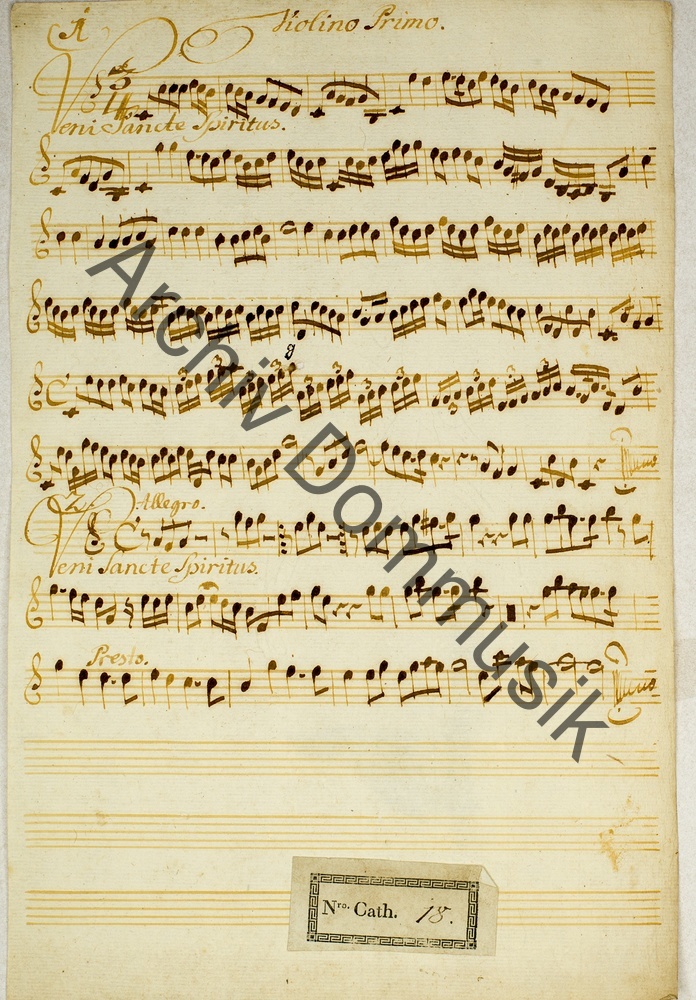 1
Violino Primo.
3
4
Veni Sancte Spiritus.
8
3 3 3 3 3 3 3 3 3
2
Allegro.
Veni Sancte Spiritus.
Presto.
Archiv Dommusik
Nro. Cath. 18.